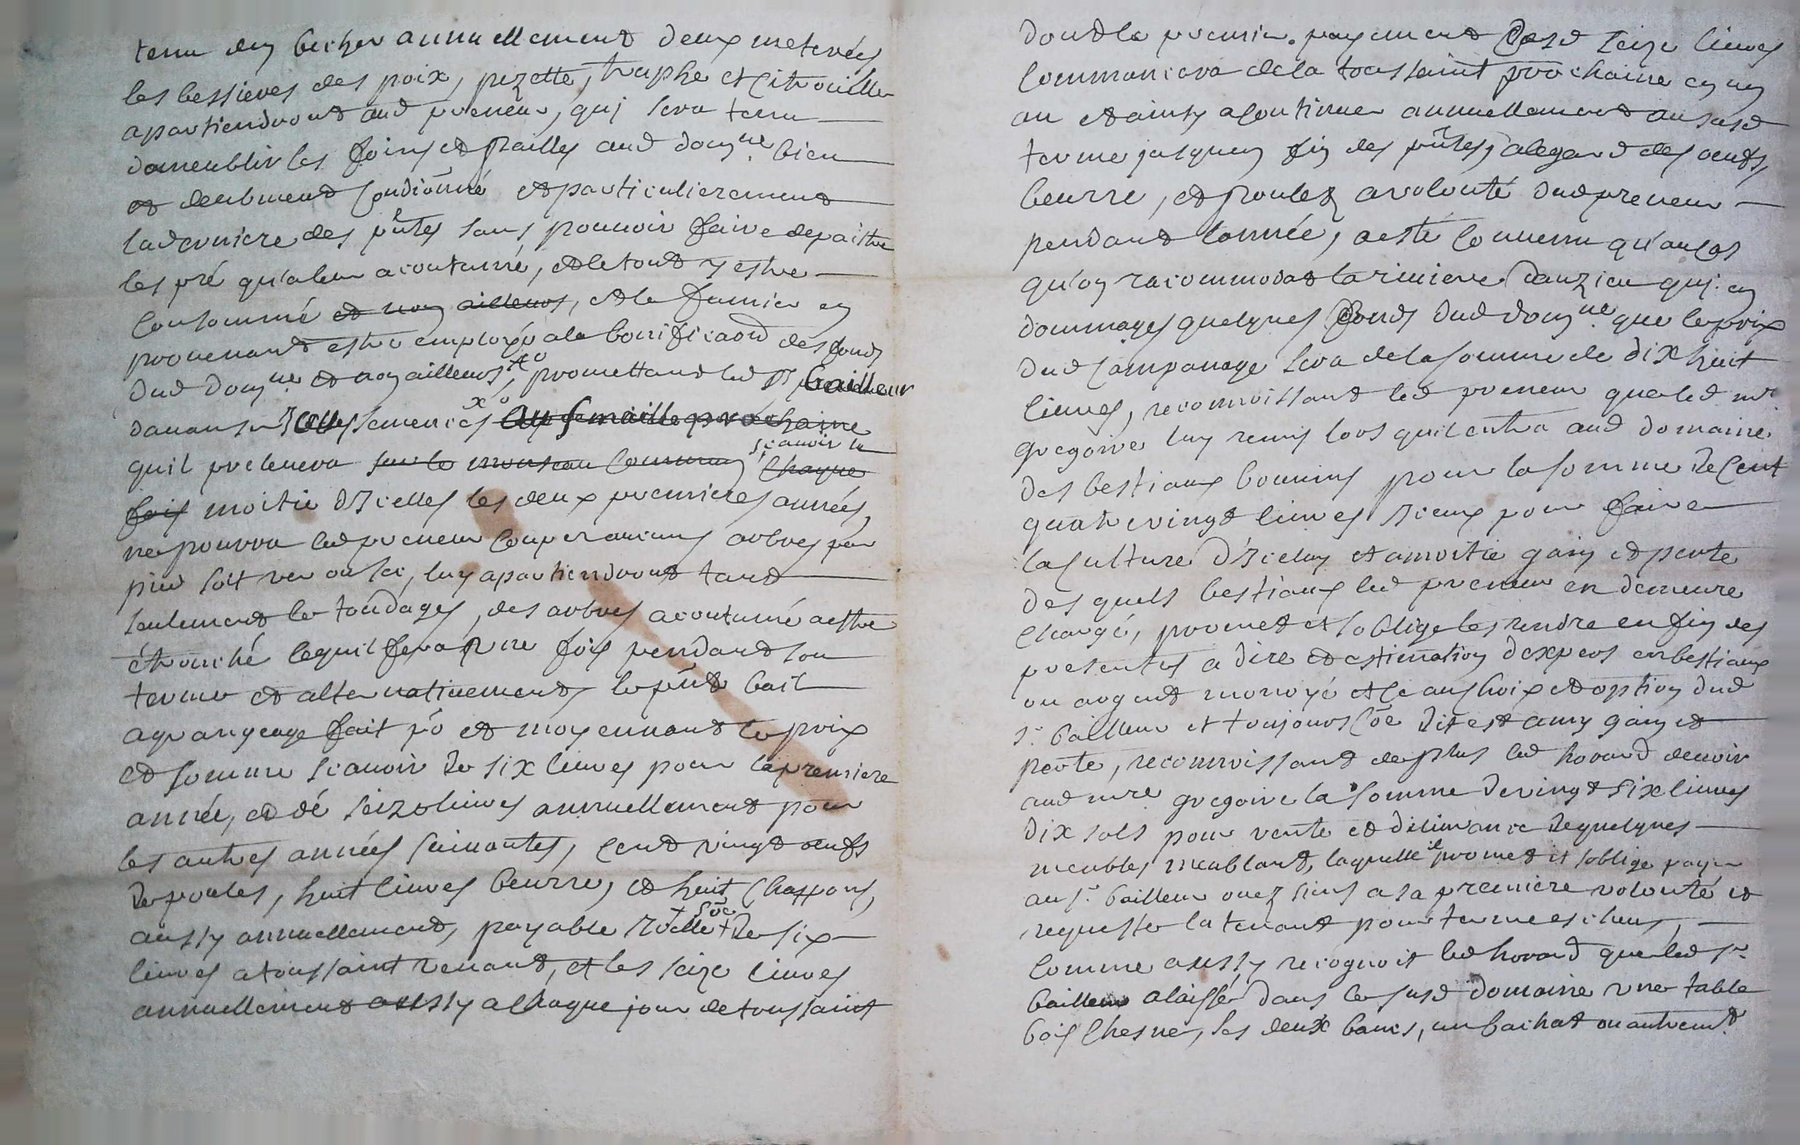 tenu den becher annuellement deux meterées
les bessieres des poix, pezette, truphe et citrouille
apartiendront aud preneur, quj sera tenu
dameublir les foins et pailles aud domne bien
et deubment conditionné et particulierement
la derniere des pntes sans pouvoir faire depaitre
les pré qu'aleur acoutumé, et le tout y estre
consommé et non ailleurs, et le fumier en
provenant estre employé a la bonificaon des fonds
dud domne et non ailleurs, promettand led sr bailleur
davanser Icelles semences au semaille prochaine
quil prelevera sur le monseau commun scavoir la chaque
fois moitié d'Icelles les deux premieres années,
ne pourra led preneur couper aucuns arbres par
pied soit ver ou sec, luy apartiendront tant
seulement le tondages, des arbres acoutumé a estre
ébranché lequil fera une fois pendant son
terme et alternativement, le pnt bail
a grangeage fait po et moyennant le prix
et somme scavoir de six livres pour la premiere
année, et dé seize livres annuellement pour
les autres années suivantes, cent vingt oeufs
de poules, huit livres beurre, et huit chappons,
aussy annuellement, payable Icelle soe de six
livres a toussaint venant, et les seize livres
annuellement aussy a chaque jour de toussaint
dont le premier payement desd seize livres
commancera de la toussaint prochaine en un
an et ainsy a continuer annuellement au susd
terme jusquen fin des pntes, alegard des oeufs,
beurre, et poulez a volonté dud preneur
pendant lannée, a esté convenu qu'au cas
qu'on racommodat la riviere danzieu quj en
dommages quelques fonds dud domne que le prix
dud campanage sera de la somme de dix huit
livres, reconnoissant led preneur que led mre
gregoire luy remis lors quil entra aud domaine
des bestiaux bouvins pour la somme de cent
quatre vingt livres Iceux pour faire
la culture d'Iceluy et a moitié gain et perte
des quels bestiaux led preneur en demeure
chargé, promet et soblige les rendre en fin des
presentes a dire et estimation dexpers en bestiaux
ou argent monoyé et ce au choix et option dud
sr bailleur et toujours coe dit est a my gain et
perte, reconnoissant de plus led hovard devoir
aud mre gregoire la somme de vingt six livres
dix sols pour vente et delivrance de quelques
meubles meublant, laquelle il promet et soblige payer
au sr bailleur ou ez siens a sa premiere volonté et
requeste la tenant pour terme escheus,
comme aussy recognoit led hovard que led sr
bailleur a laissé dans le susd domaine une table
bois chesne, ses deux bancs, un bachat ou autremt